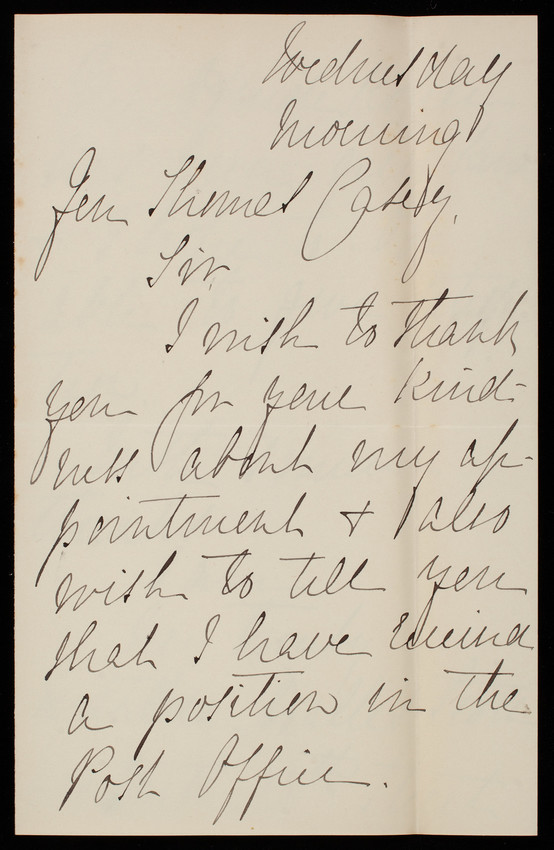 Wednesday
Morning
Gen Thomas Casey,
Sir,
I wish to thank
you for your kind-
ness about my ap-
pointment & also
wish to tell you
that I have secured
a position in the
Post Office.